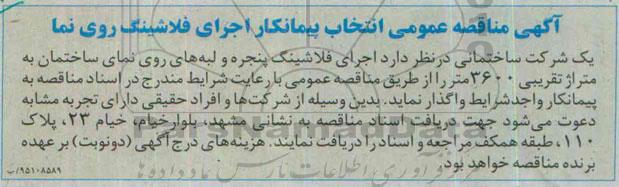 آگهی مناقصه عمومی انتخاب پیمانکار اجرای فلاشینگ روی نما
یک شرکت ساختمانی درنظر دارد اجرای فلاشینگ پنجره و لبه‌های روی نمای ساختمان به
متراژ تقریبی ۳۶۰۰متر را از طریق مناقصه عمومی با رعایت شرایط مندرج در اسناد مناقصه به
پیمانکار واجدشرایط واگذار نماید. بدین وسیله از شرکت‌ها و افراد حقیقی دارای تجربه مشابه
دعوت می‌شود جهت دریافت اسناد مناقصه به نشانی مشهد، بلوارخیام، خیام ۲۳، پلاک
۱۱۰، طبقه همکف مراجعه و اسناد را دریافت نمایند. هزینه‌های درج آگهی (دونوبت) بر عهده
برنده مناقصه خواهد بود.
۹۵۱۰۸۵۸۹/ب
ParsNamadData
فرآوری اطلاعات پارس نماد داده‌ها